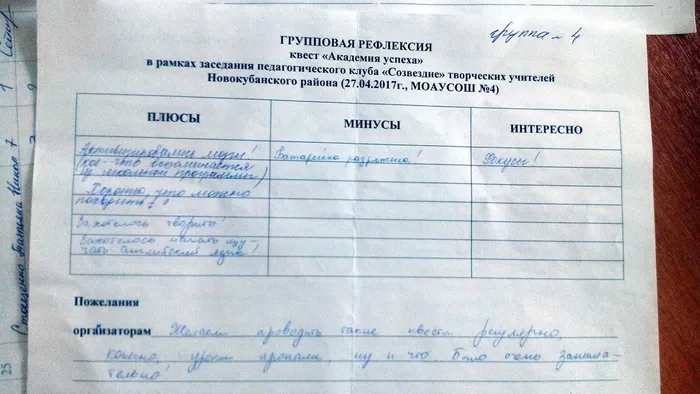 группа - 4
ГРУППОВАЯ РЕФЛЕКСИЯ
квест «Академия успеха»
в рамках заседания педагогического клуба «Созвездие» творческих учителей
Новокубанского района (27.04.2017г., МОАУСОШ №4)
ПЛЮСЫ МИНУСЫ ИНТЕРЕСНО
Активизировались мозги! Батарейка разряжена! Фокусы!
(кое-что вспоминается
из школьной программы)
Хорошо, что можно
говорить!
Захотелось творить!
Захотелось начать изу-
чать английский язык!
Пожелания
организаторам Желаем проводить такие квесты регулярно,
конечно, уроки пропали, ну и что. Было очень занима-
тельно!
Татьяна
25